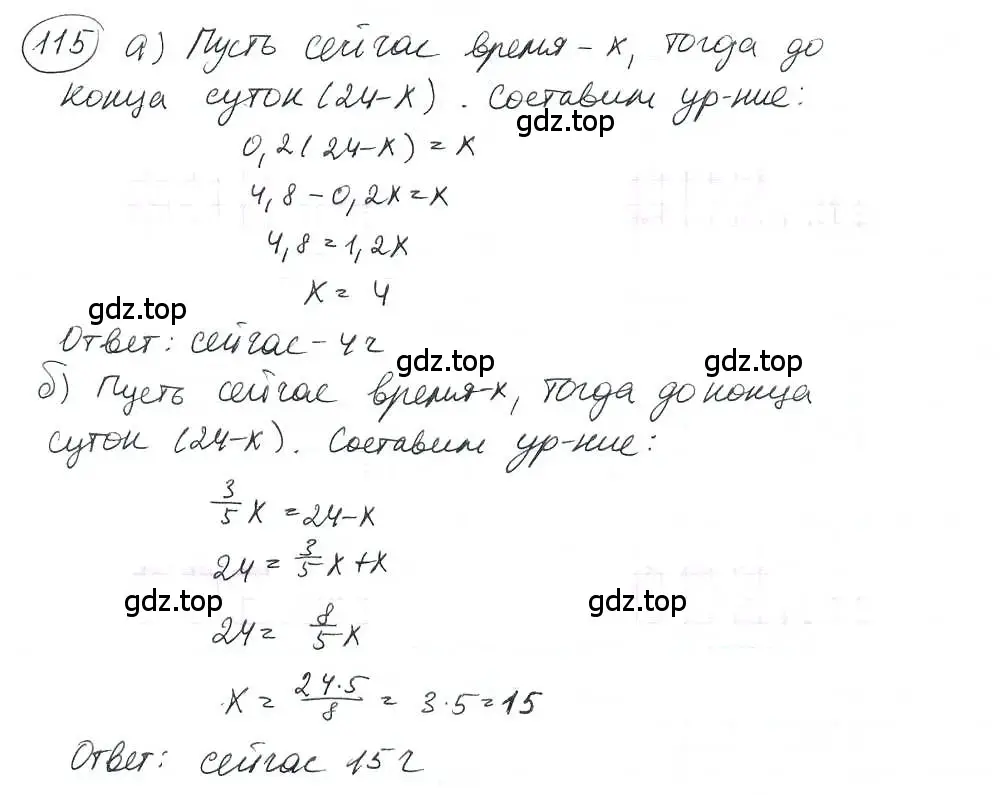 115 а) Пусть сейчас время - x, тогда до
конца суток (24-x). Составим ур-ние:
gdz.top
0,2(24-x)=x
4,8-0,2x=x
4,8=1,2x
x= 4
gdz.top
Ответ: сейчас - 4г
gdz.top
gdz.top
б) Пусть сейчас время-x, тогда до конца
суток (24-x). Составим ур-ние:
3/5 x =24-x
24= 3/5 x+x
gdz.top
gdz.top
24= 8/5 x
x= 24·5/8 = 3·5=15
Ответ: сейчас 15г